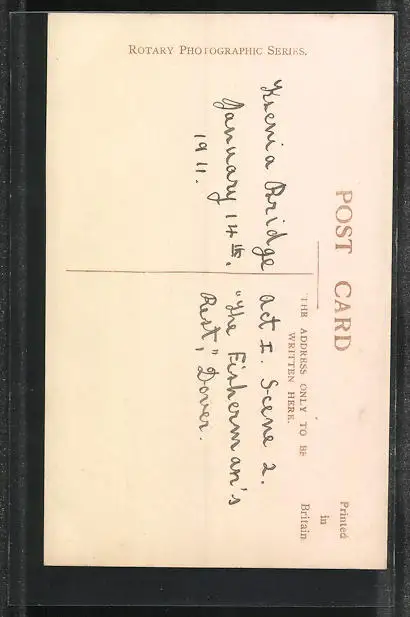 ROTARY PHOTOGRAPHIC SERIES.
POST CARD
Printed
in
Britain
THE ADDRESS ONLY TO BE
WRITTEN HERE.
Ksenia Bridge
January 14th,
1911.
Act I. Scene 2.
"The Fisherman's
Rest", Dover.